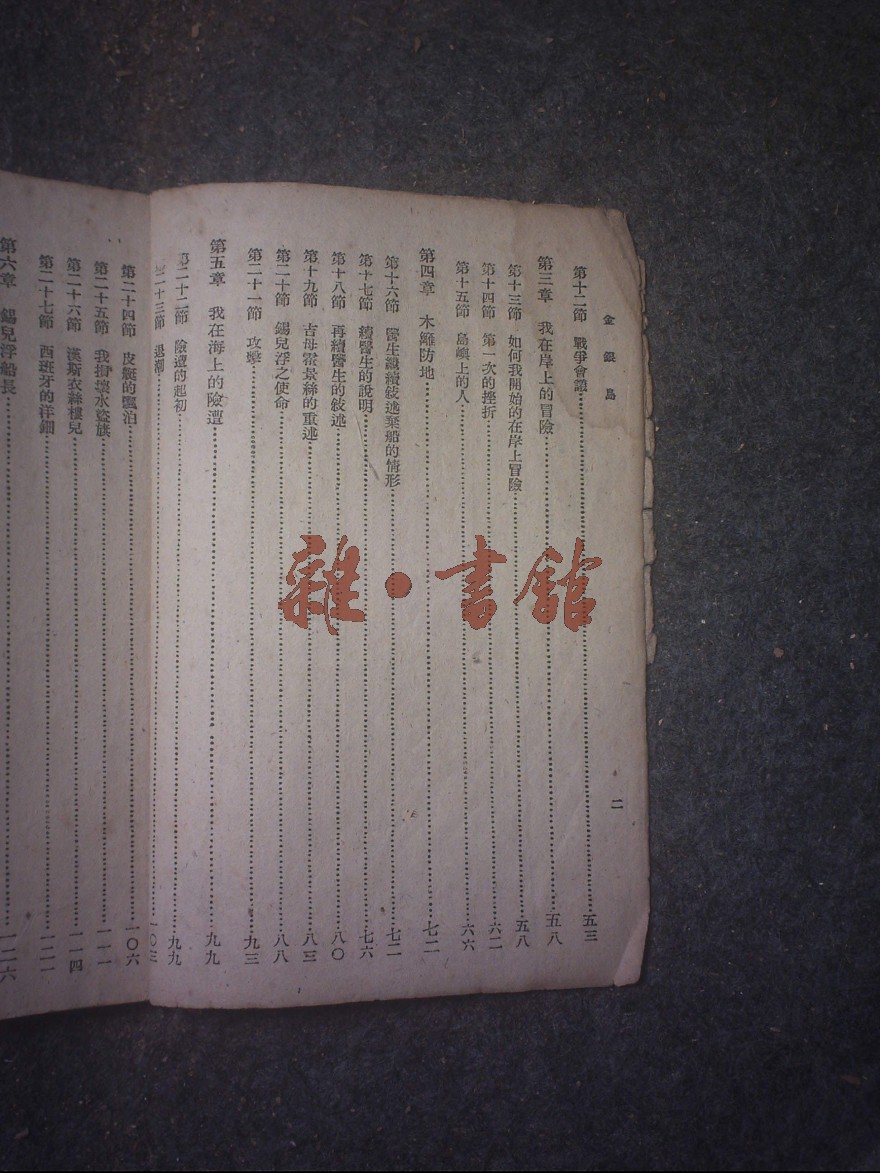 金銀島
二
第十二節 戰爭會議……五三
第三章 我在岸上的冒險……五八
第十三節 如何我開始的在岸上冒險……五八
第十四節 第一次的挫折……六二
第十五節 島嶼上的人……六六
第四章 木籬防地……七二
第十六節 醫生繼續敍述棄船的情形……七二
第十七節 續醫生的說明……七六
第十八節 再續醫生的敍述……八〇
第十九節 吉母霍景絲的重述……八三
第二十節 錫兒浮之使命……八八
第二十一節 攻擊……九三
第五章 我在海上的險遭……九九
第二十二節 險遭的起初……九九
二十三節 退潮……一〇三
第二十四節 皮艇的飄泊……一〇六
第二十五節 我扯壞水盜旗……一一一
第二十六節 漢斯衣絲樓兒……一一四
第二十七節 西班牙的洋鈿……一二一
第六章 錫兒浮船長……一二六
雜·書館